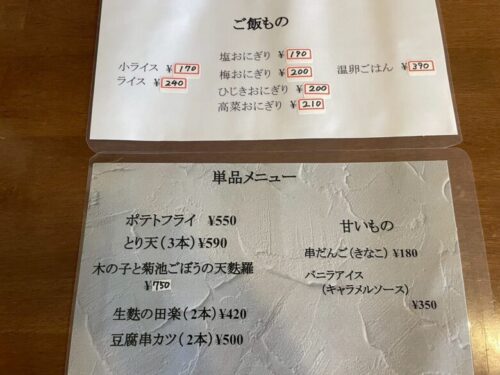 ご飯もの
小ライス ¥170
ライス ¥240
塩おにぎり ¥190
梅おにぎり ¥200
ひじきおにぎり ¥200
高菜おにぎり ¥210
温卵ごはん ¥390
単品メニュー
ポテトフライ ¥550
とり天(3本)¥590
木の子と菊池ごぼうの天麩羅
¥750
生麩の田楽(2本)¥420
豆腐串カツ(2本)¥500
甘いもの
串だんご(きなこ)¥180
バニラアイス
(キャラメルソース)
¥350